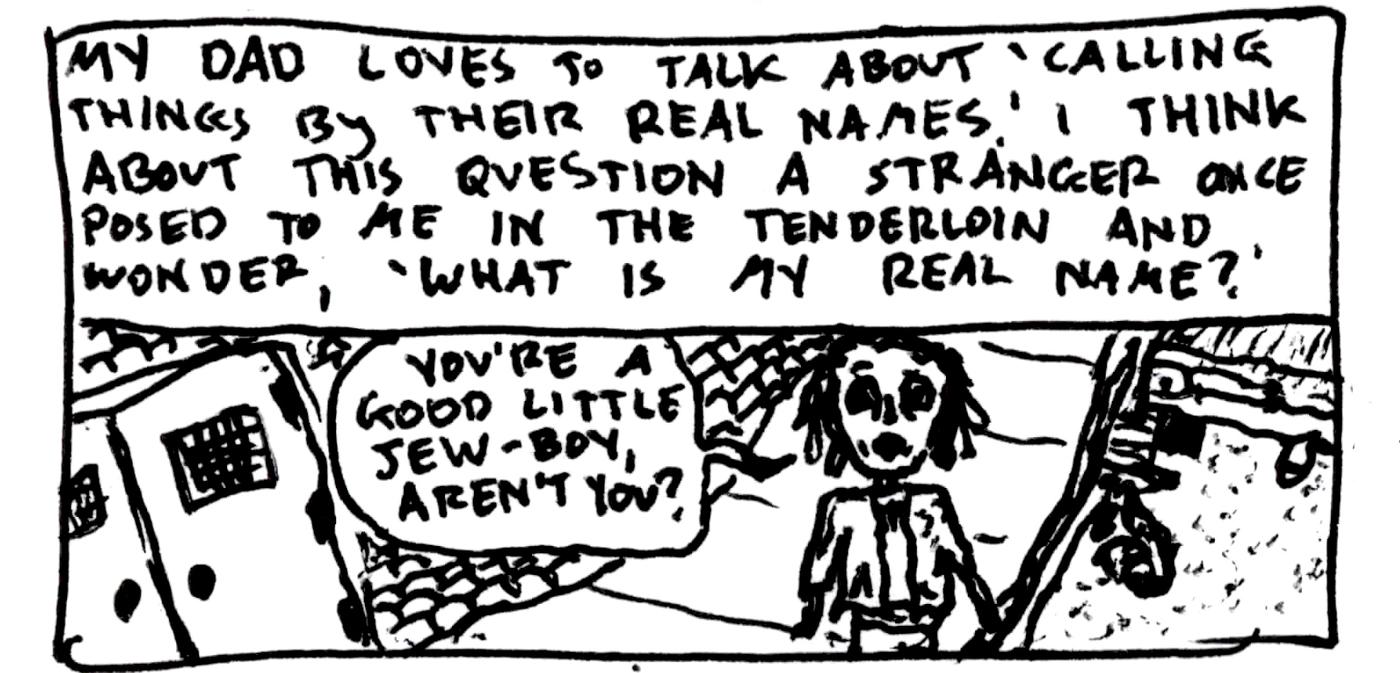 MY DAD LOVES TO TALK ABOUT 'CALLING
THINGS BY THEIR REAL NAMES.' I THINK
ABOUT THIS QUESTION A STRANGER ONCE
POSED TO ME IN THE TENDERLOIN AND
WONDER, 'WHAT IS MY REAL NAME?'
YOU'RE A
GOOD LITTLE
JEW-BOY,
AREN'T YOU?